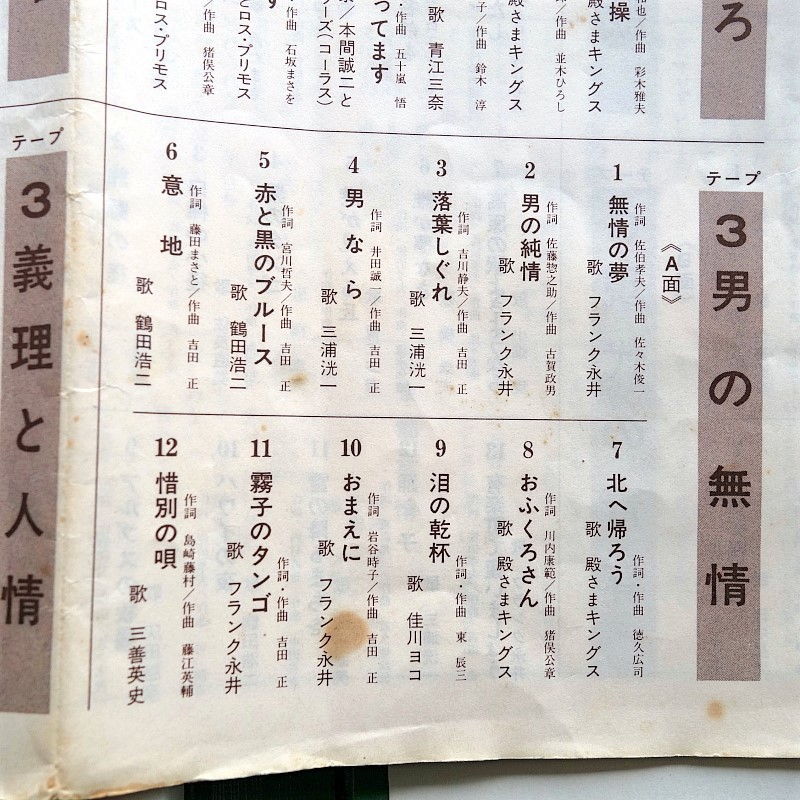 ろ
也/作曲 彩木雅夫
操
殿さまキングス
作曲 並木ひろし
殿さまキングス
子/作曲 鈴木 淳
歌 青江三奈
・作曲 五十嵐 悟
ってます
/本間誠二と
ーズ(コーラス)
作曲 石坂まさを
す
とロス・プリモス
/作曲 猪俣公章
ロス・プリモス
テープ
3男の無情
《A面》
1 無情の夢
作詞 佐伯孝夫/作曲 佐々木俊一
歌 フランク永井
2 男の純情
作詞 佐藤惣之助/作曲 古賀政男
歌 フランク永井
3 落葉しぐれ
作詞 吉川静夫/作曲 吉田 正
歌 三浦洸一
4 男なら
作詞 井田誠一/作曲 吉田 正
歌 三浦洸一
5 赤と黒のブルース
作詞 宮川哲夫/作曲 吉田 正
歌 鶴田浩二
6 意 地
作詞 藤田まさと/作曲 吉田 正
歌 鶴田浩二
7 北へ帰ろう
作詞・作曲 徳久広司
歌 殿さまキングス
8 おふくろさん
作詞 川内康範/作曲 猪俣公章
歌 殿さまキングス
9 泪の乾杯
作詞・作曲 東 辰三
歌 佳川ヨコ
10 おまえに
作詞 岩谷時子/作曲 吉田 正
歌 フランク永井
11 霧子のタンゴ
作詞・作曲 吉田 正
歌 フランク永井
12 惜別の唄
作詞 島崎藤村/作曲 藤江英輔
歌 三善英史
テープ
3義理と人情